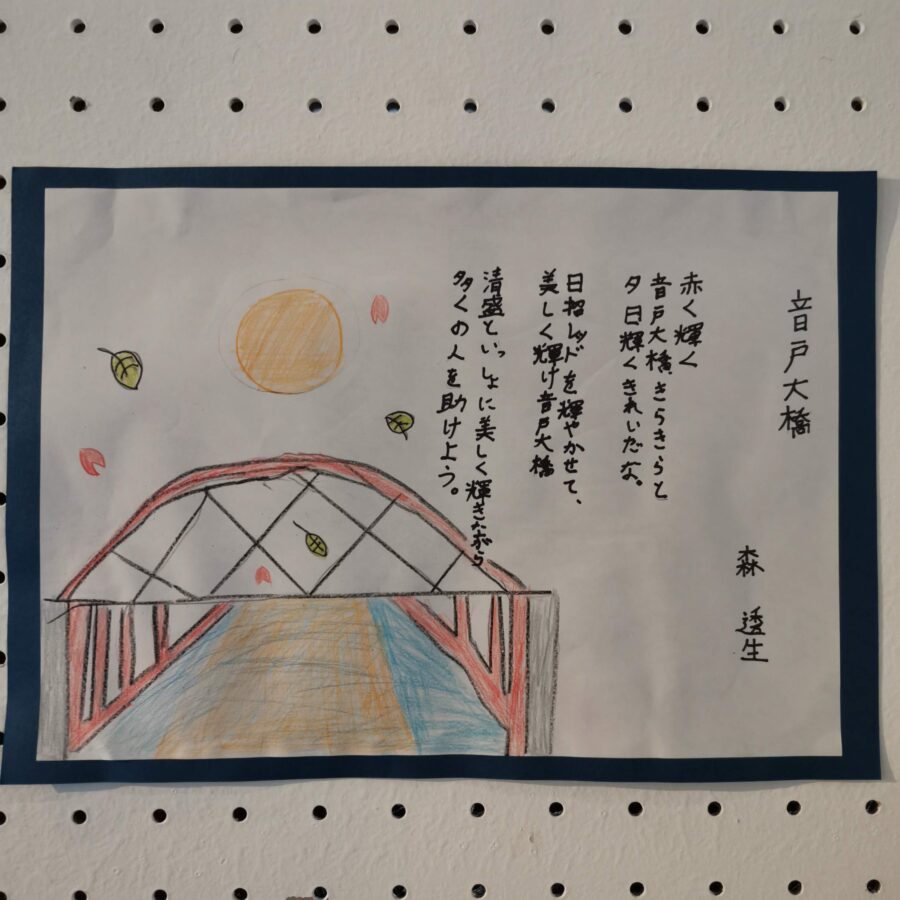 音戸大橋
森 透生
赤く輝く
音戸大橋きらきらと
夕日輝くきれいだな。
日招レッドを輝やかせて、
美しく輝け音戸大橋
清盛といっしょに美しく輝きながら
多くの人を助けよう。